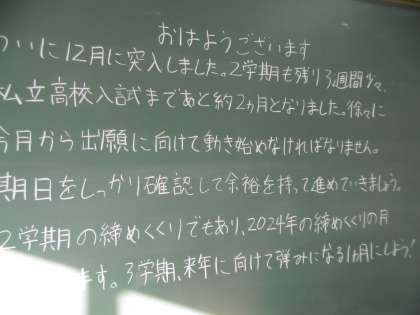 おはようございます
ついに12月に突入しました。2学期も残り3週間少々、
私立高校入試まであと約2ヵ月となりました。徐々に
今月から出願に向けて動き始めなければなりません。
期日をしっかり確認して余裕を持って進めていきましょう。
2学期の締めくくりでもあり、2024年の締めくくりの月
ます。3学期、来年に向けて弾みになる1ヵ月にしよう!